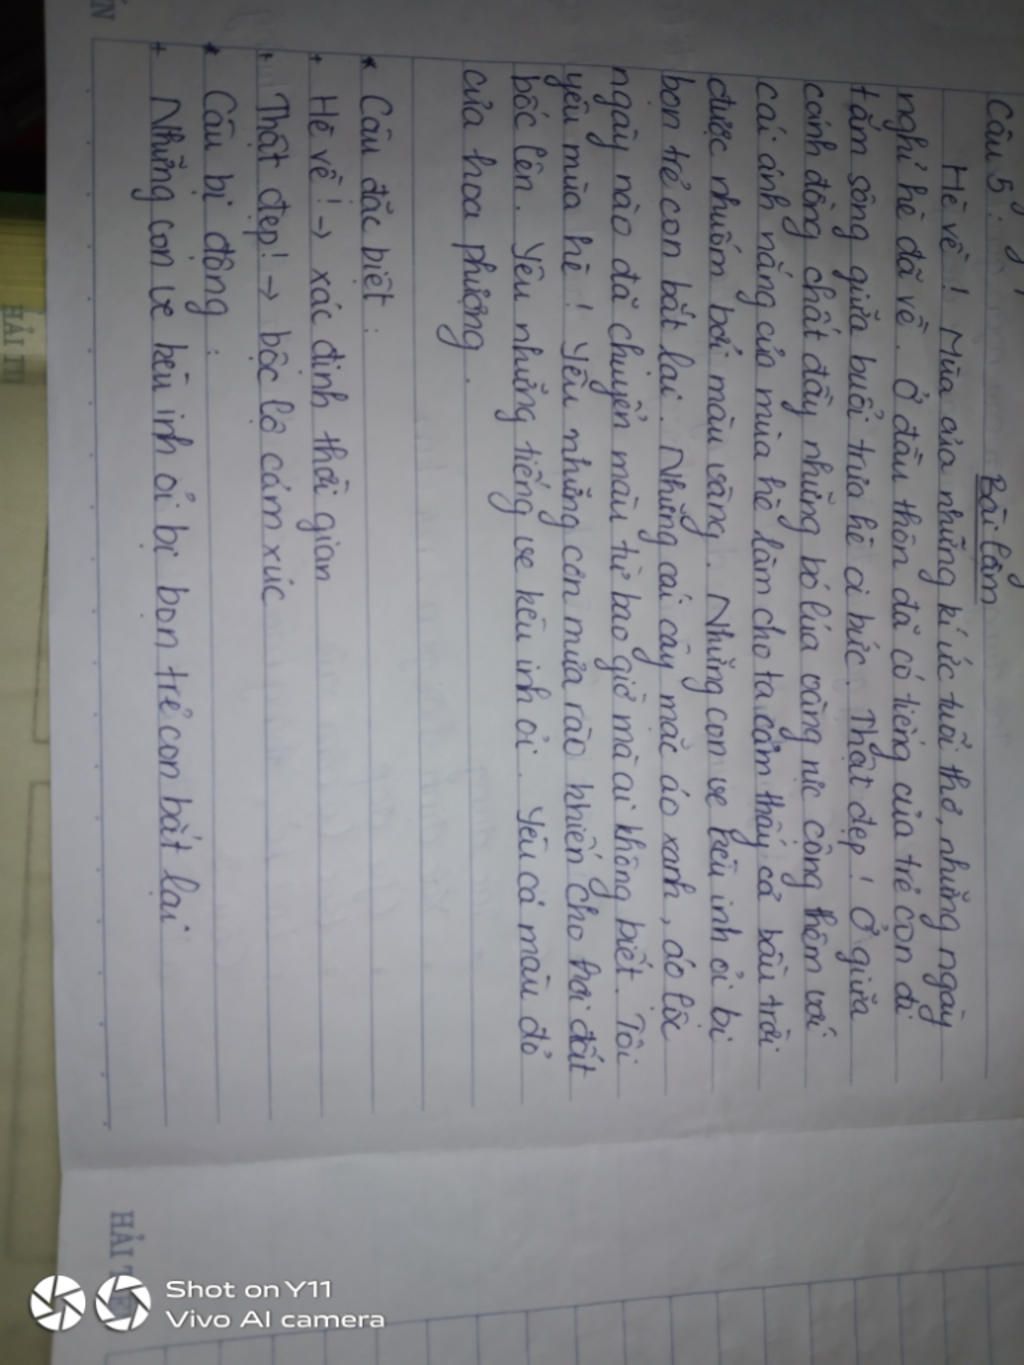 Câu 5:
Bài làm
Hè về! Mùa của những kí ức tuổi thơ, những ngày
nghỉ hè đã về. Ở đầu thôn đã có tiếng của trẻ con đi
tắm sông giữa buổi trưa hè oi bức. Thật đẹp! Ở giữa
cánh đồng chất đầy những bó lúa vàng nực cộng thêm với
cái ánh nắng của mùa hè làm cho ta cảm thấy cả bầu trời
được nhuốm bởi màu vàng. Những con ve kêu inh ỏi bị
bọn trẻ con bắt lại. Những cái cây mặc áo xanh, áo lục
ngày nào đã chuyển màu từ bao giờ mà ai không biết. Tôi
yêu mùa hè! Yêu những cơn mưa rào khiến cho hơi đất
bốc lên. Yêu những tiếng ve kêu inh ỏi. Yêu cả màu đỏ
của hoa phượng.
* Câu đặc biệt:
+ Hè về! → xác định thời gian
+ Thật đẹp! → bộc lộ cảm xúc
* Câu bị động:
+ Những con ve kêu inh ỏi bị bọn trẻ con bắt lại
HẢI
HẢI T
Shot on Y11
Vivo AI camera